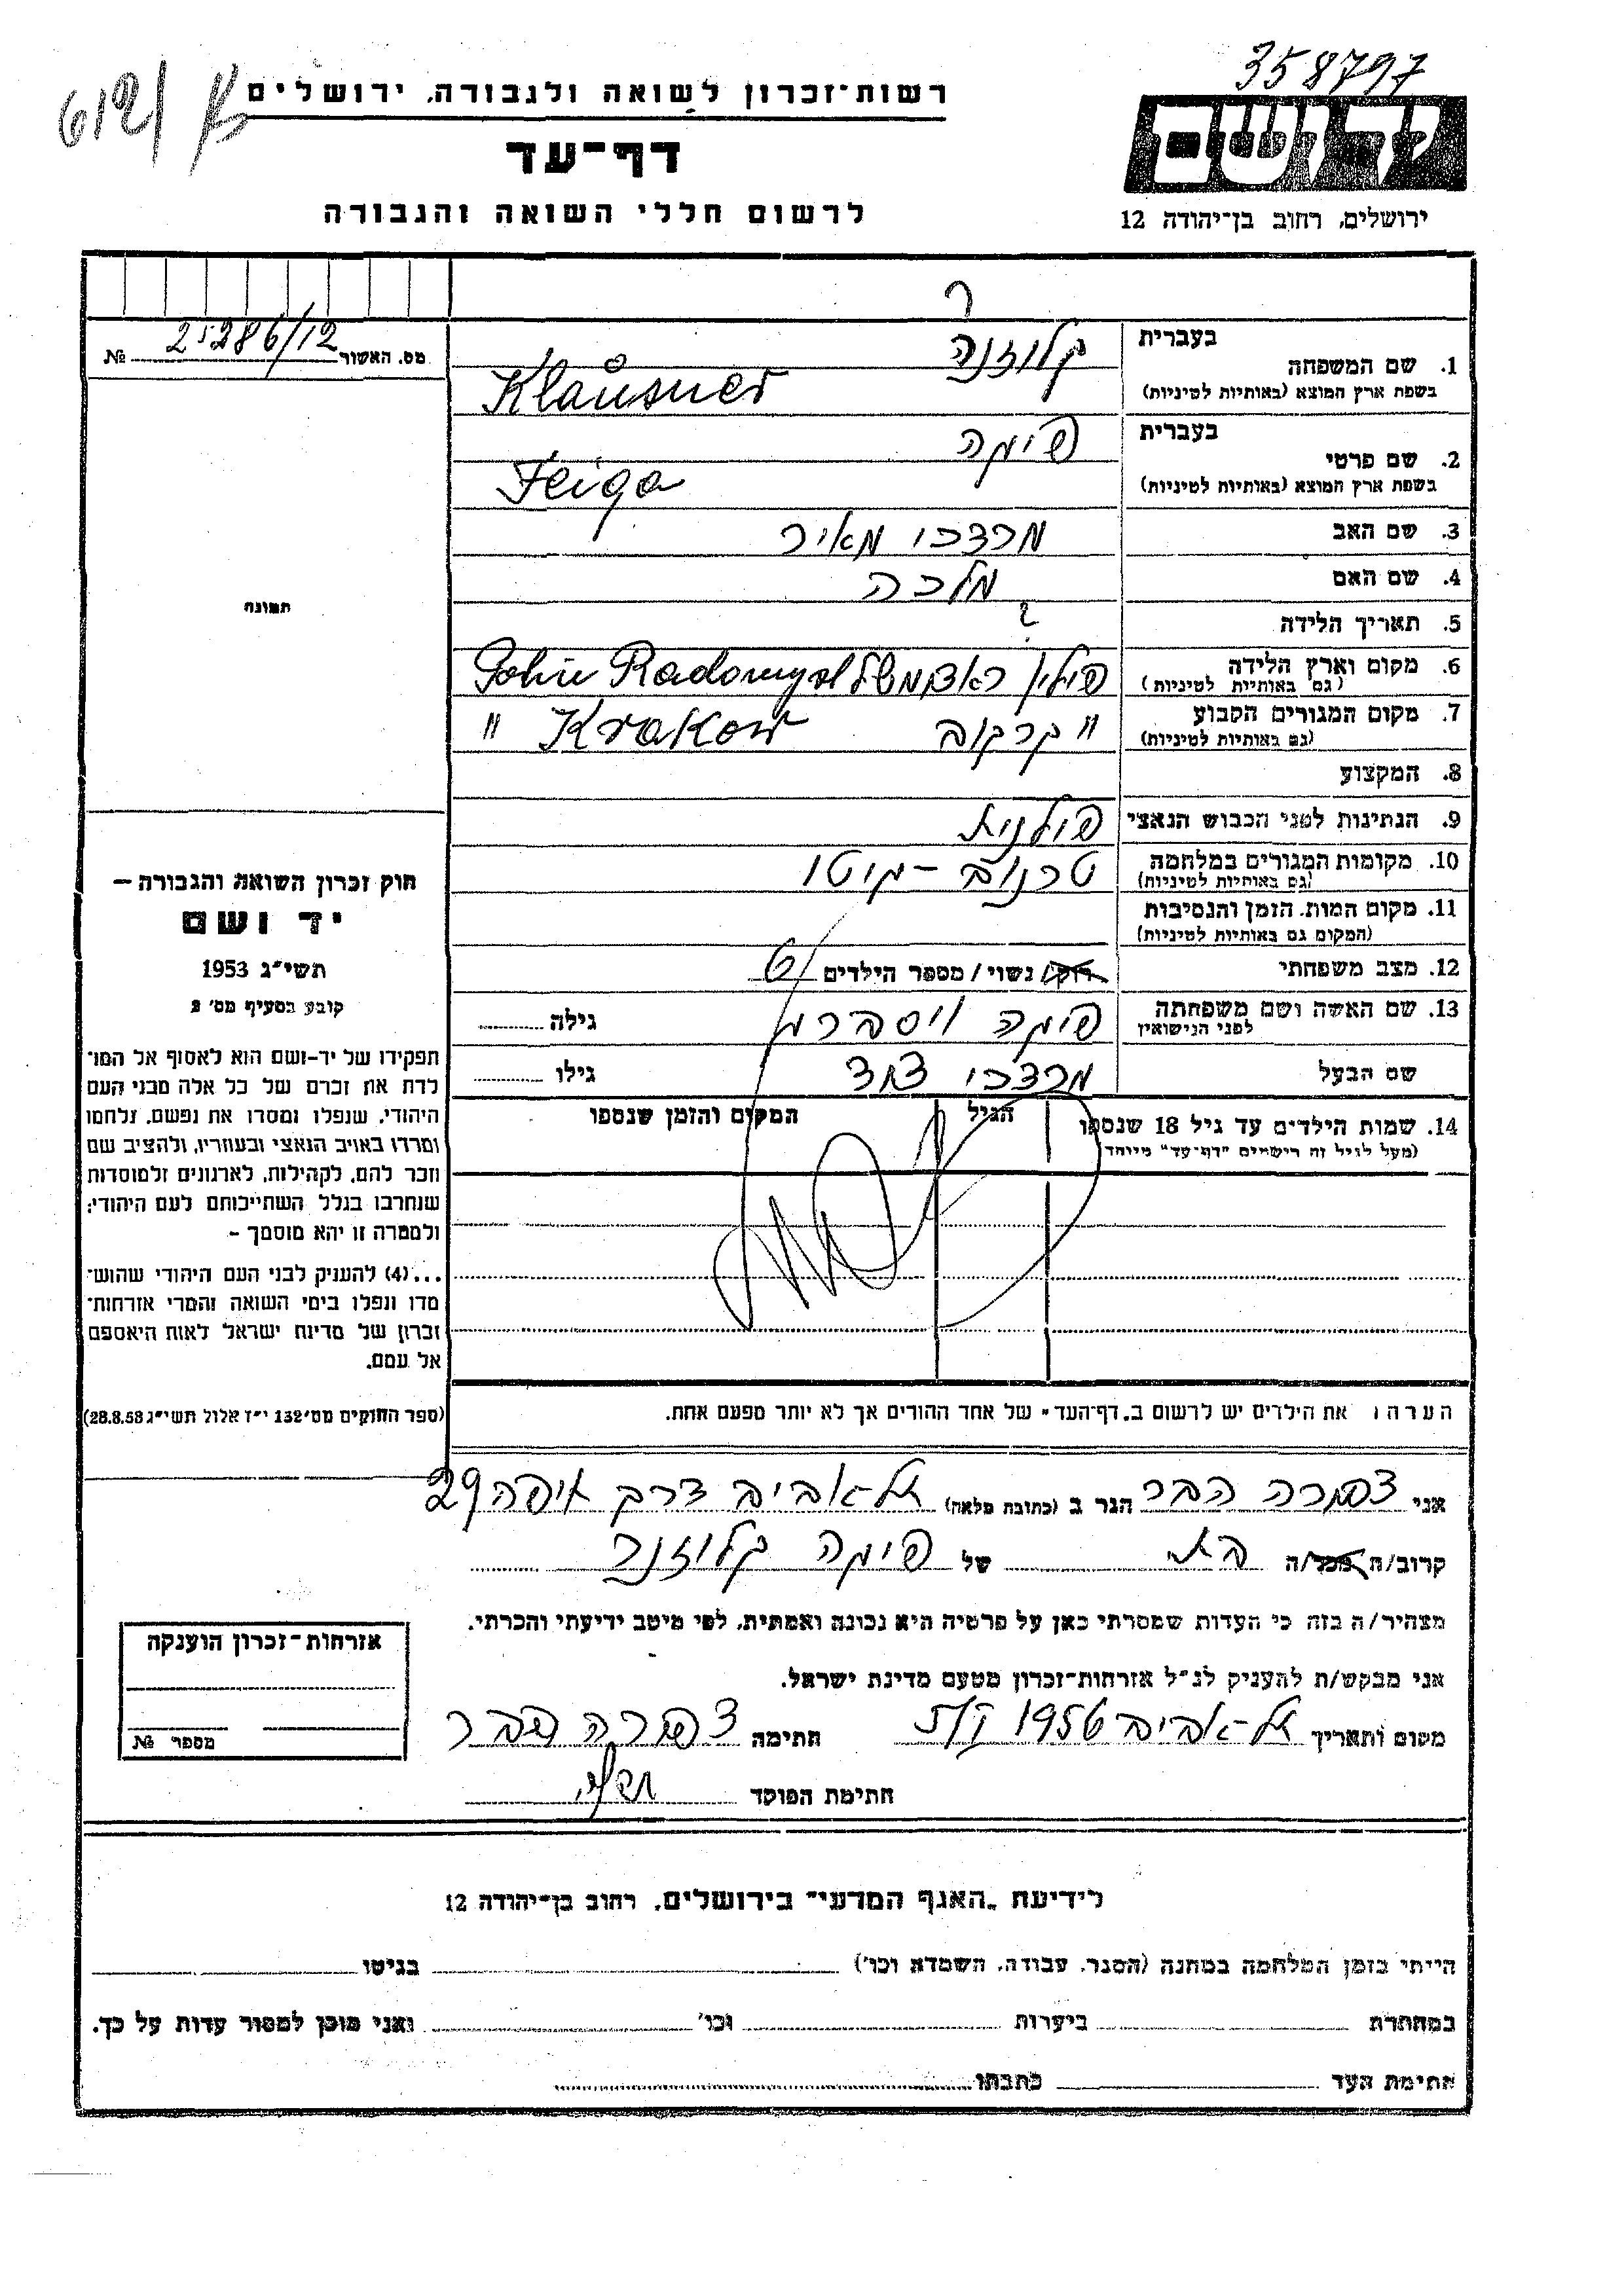 358797
רשות־זכרון לשואה ולגבורה, ירושלים
דף־עד
לרשום חללי השואה והגבורה
ידושם
ירושלים, רחוב בן־יהודה 12
מס. האשור 25286/12 №
תמונה
בעברית
1. שם המשפחה קלוזנר
בשפת ארץ המוצא (באותיות לטיניות) Klausner
בעברית
2. שם פרטי פיגה
בשפת ארץ המוצא (באותיות לטיניות) Feiga
3. שם האב מרדכי מאיר
4. שם האם מלכה
5. תאריך הלידה ?
6. מקום וארץ הלידה פולין Radomysl
(גם באותיות לטיניות)
7. מקום המגורים הקבוע " קרקוב " Krakow
(גם באותיות לטיניות)
8. המקצוע
9. הנתינות לפני הכבוש הנאצי פולנית
10. מקומות המגורים במלחמה טרנוב - גיטו
(גם באותיות לטיניות)
11. מקום המות, הזמן והנסיבות
(המקום גם באותיות לטיניות)
12. מצב משפחתי רוק/ נשוי / מספר הילדים 6
13. שם האשה ושם משפחתה פיגה ויסברג גילה
לפני הנישואין
שם הבעל מרדכי דוד גילו
14. שמות הילדים עד גיל 18 שנספו הגיל המקום והזמן שנספו
(מעל לגיל זה רישמים "דף־עד" מיוחד)
הערה: את הילדים יש לרשום ב„דף־העד" של אחד ההורים אך לא יותר מפעם אחת.
חוק זכרון השואה והגבורה —
יד ושם
תשי"ג 1953
קובע בסעיף מס' 2
תפקידו של יד־ושם הוא לאסוף אל המו־
לדת את זכרם של כל אלה מבני העם
היהודי, שנפלו ומסרו את נפשם, נלחמו
ומרדו באויב הנאצי ובעוזריו, ולהציב שם
וזכר להם, לקהילות, לארגונים ולמוסדות
שנחרבו בגלל השתייכותם לעם היהודי;
ולמטרה זו יהא מוסמך -
...(4) להעניק לבני העם היהודי שהוש־
מדו ונפלו בימי השואה והמרי אזרחות־
זכרון של מדינת ישראל לאות היאספם
אל עמם.
(ספר החוקים מס' 132 י"ז אלול תשי"ג 28.8.53)
אני צפורה הבר הגר ב (כתובת מלאה) תל-אביב דרך יפה 29
קרוב/ת מכר/ה בת של פיגה קלוזנר
מצהיר/ה בזה כי העדות שמסרתי כאן על פרטיה היא נכונה ואמתית, לפי מיטב ידיעתי והכרתי.
אני מבקש/ת להעניק לנ"ל אזרחות־זכרון מטעם מדינת ישראל.
מקום ותאריך תל-אביב 1956 חתימה צפורה הבר
חתימת הפוקד
אזרחות־זכרון הוענקה
מספר №
לידיעת „האגף המדעי" בירושלים, רחוב בן־יהודה 12
הייתי בזמן המלחמה במחנה (הסגר, עבודה, השמדה וכו') בגיטו
במחתרת ביערות וכו' ואני מוכן למסור עדות על כך.
חתימת העד כתבתו